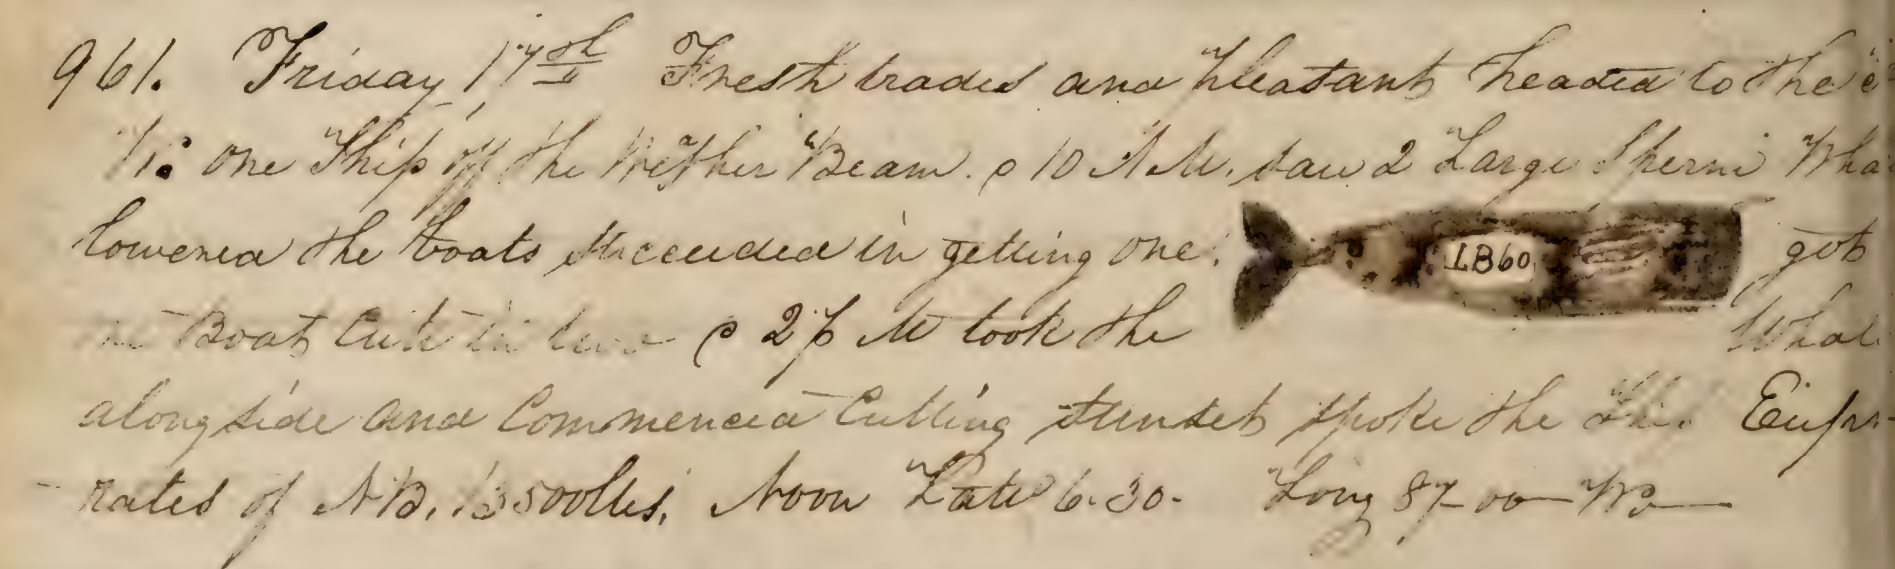 961. Friday 17th Fresh trades and pleasant headed to the
one Ship off the Wether Beam. @ 10 A M. saw 2 Large Sperm Wha
lowered the boats succeeded in getting one. LB60 got
Boat Cut in two @ 2 p M took the Whal
alongside and Commenced Cutting Sunset spoke the Ship Eup
rates of N B. 1300 Noon Lat 6-30- Long 87-00 W